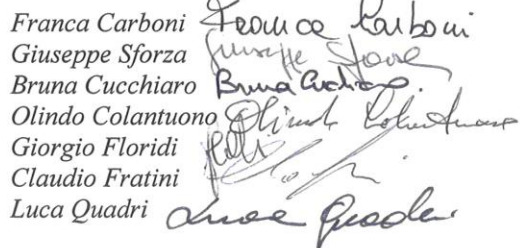 Franca Carboni Franca Carboni
Giuseppe Sforza Giuseppe Sforza
Bruna Cucchiaro Bruna Cucchiaro
Olindo Colantuono Olindo Colantuono
Giorgio Floridi
Claudio Fratini
Luca Quadri Luca Quadri